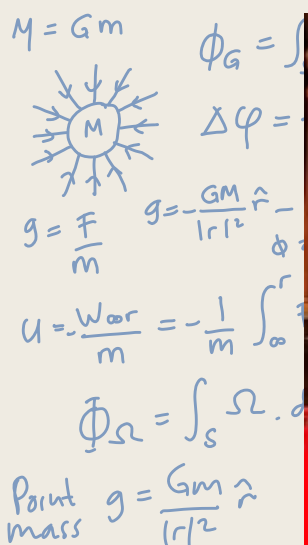 M = Gm
ϕ_G = ∫
M
Δφ =
g = F/m
g = - GM/|r|² r̂ -
ϕ =
U = - W∞r/m = - 1/m ∫_∞^r
ϕ_Ω = ∫_s Ω .
Point mass g = Gm/|r|² r̂